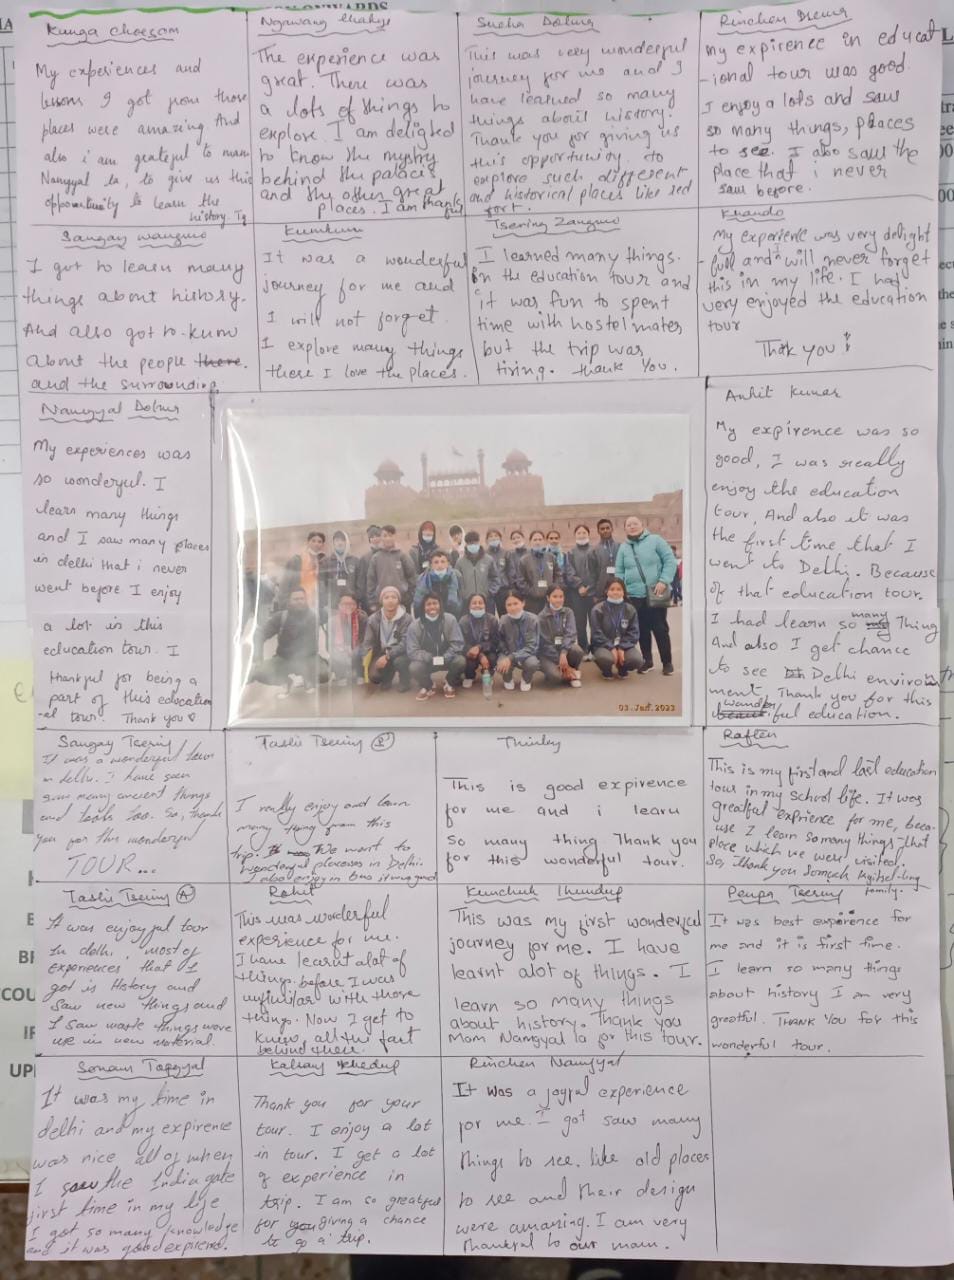 Kunga Choesom
My experiences and
lessons I got from those
places were amazing. And
also i am grateful to mam
Namgyal la, to give us this
opportunity to learn the
history. Tq
Ngawang
The experience was
great. There was
a lots of things to
explore. I am delighed
to know the mystry
behind the palacis
and the other great
places. I am thank
ful
Dolma
This was very wonderful
journey for me and I
have learned so many
things about history.
Thank you for giving us
this opportunity to
explore such different
and historical places like red
fort.
Rinchen
My expirence in educat
-ional tour was good.
I enjoy a lots and saw
so many things, places
to see. I also saw the
place that i never
saw before.
Sangay wangmo
I got to learn many
things about history.
And also got to know
about the people there.
and the surrounding.
Kumkum
It was a wonderful
journey for me and
I will not forget.
I explore many things
there I love the places.
Tsering Zangmo
I learned many things.
in the education tour and
it was fun to spent
time with hostelmates
but the trip was
tiring. thank You.
Khando
My experience was very delight
-full and I will never forget
this in my life. I had
very enjoyed the education
tour
Thank you!
Namgyal Dolma
My experiences was
so wonderful. I
learn many things
and I saw many places
in delhi that i never
went before I enjoy
a lot in this
education tour. I
thankful for being a
part of this education
-al tour. Thank you
Ankit Kumar
My expirence was so
good, I was really
enjoy the education
tour, And also it was
the first time that I
went to Delhi. Because
of that education tour.
I had learn so many Thing
And also I get chance
to see Delhi environ
ment. Thank you for this
wonderful education.
03.Jan.2023
Sangay Tsering
It was a wonderful town
in delhi. I have seen
many ancient things
and tools too. So, thank
you for this wonderful
TOUR...
Tashi Tsering (B)
I really enjoy and learn
many thing from this
trip. We went to
wonderful placeses in Delhi.
I also enjoy in bus
Thinley
This is good expirence
for me and i learn
so many thing Thank you
for this wonderful tour.
Raften
This is my first and last education
tour in my school life. It was
greatful exprience for me, beca-
use I learn so many things that
place which we were visited.
So, Thank you
family.
Tashi Tsering (A)
It was enjoyful tour
In delhi, most of
experiences that I
got is History and
saw new things and
I saw waste things were
use in new material.
Rohit
This was wonderful
experience for me.
I have learnt alot of
things. before I was
with those
things. Now I get to
know all the fact
behind them.
Kunchuk Lhundup
This was my first wonderful
journey for me. I have
learnt alot of things. I
learn so many things
about history. Thank you
Mam Namgyal la for this tour.
Penpa Tsering
It was best experence for
me and it is first time.
I learn so many things
about history I am very
greatful. THANK YOU FOR this
wonderful tour.
Sonam Topgyal
It was my time in
delhi and my expirence
was nice all of when
I saw the India gate
first time in my life
I got so many knowledge
and it was good expirence.
Kalsang Khedup
Thank you for your
tour. I enjoy a lot
in tour. I get a lot
of experience in
trip. I am so greatful
for you giving a chance
to go a trip.
Rinchen Namgyal
It was a joyful experience
for me. I got saw many
things to see. like old places
to see and their design
were amazing. I am very
thankful to our mam.